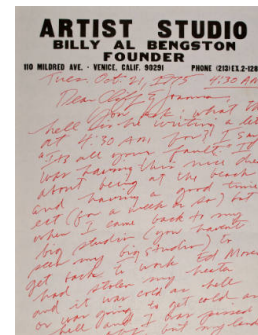 ARTIST STUDIO
BILLY AL BENGSTON
FOUNDER
110 MILDRED AVE. - VENICE, CALIF. 90291 PHONE (213) EX.2-128
Tues. Oct. 21, 1975 4:30 AM
Dear Cliff & Joanna
You ask what the
hell is he writing a let
at 4:30 AM. for? I say
"Its all your fault." It
was having this nice dream
about being at the beach
and having a good time
ect (for a week or so) but
when I came back to my
big studio (you haven't
seen my big studio) to
get back to work Ed Moses
had stolen my heater
and it was cold as hell
or was going to get cold as
hell and I was pissed
but my